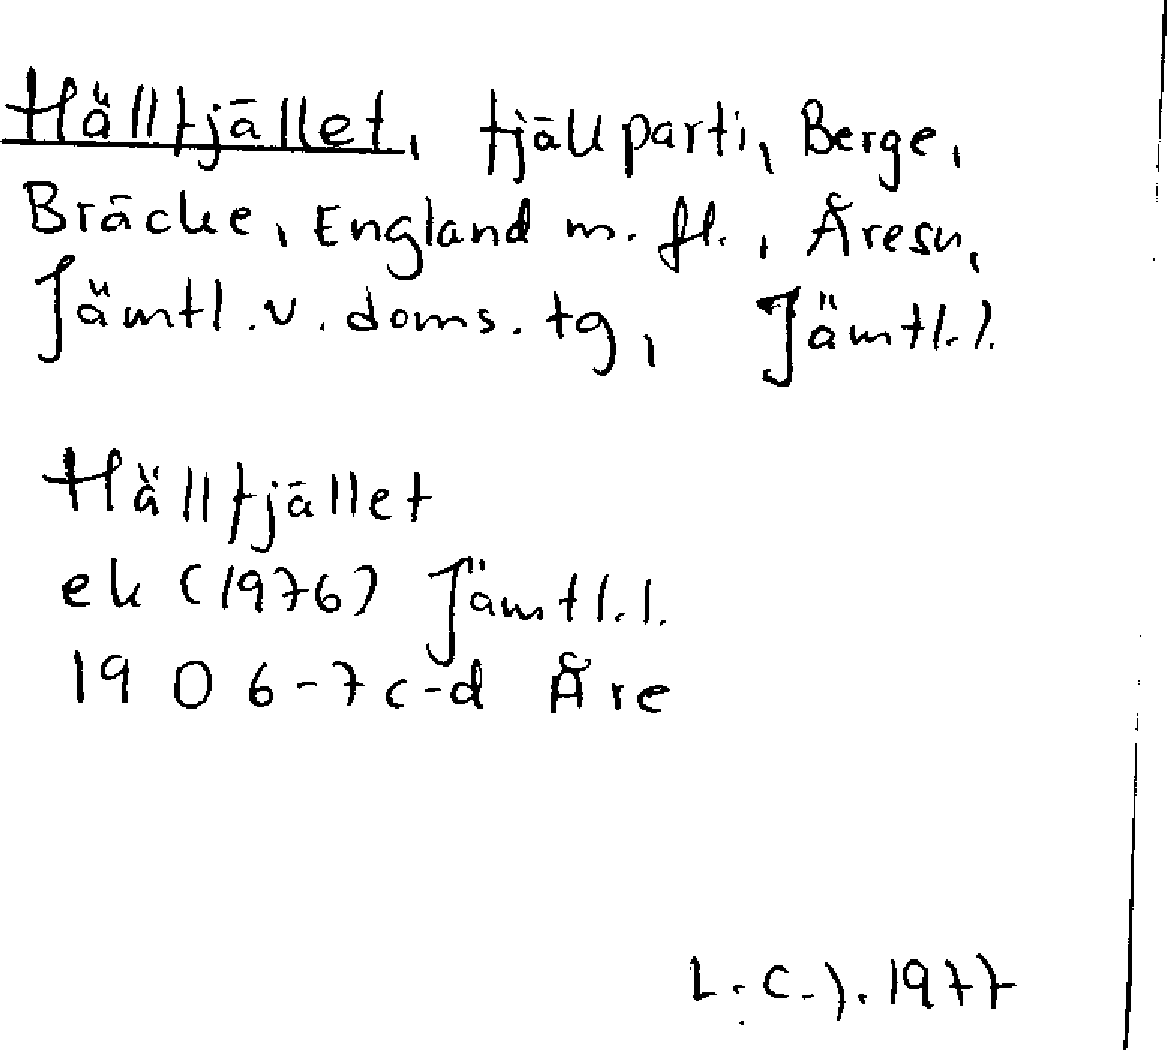 Hällfjället, fjällparti, Berge,
Bräcke, England m. fl., Åresn,
Jämtl. v. doms. tg, Jämtl. l.
Hällfjället
ek (1976) Jämtl. l.
19 D 6-7 c-d Åre
L. C. J. 1977